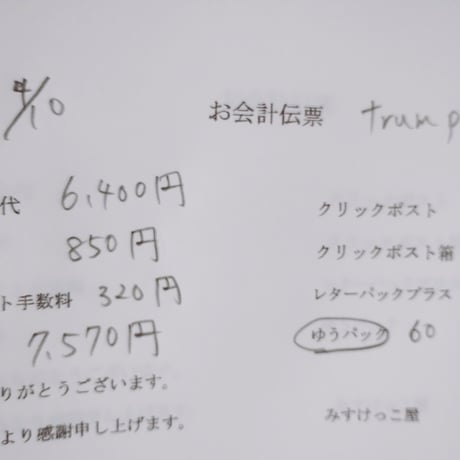 4/10
お会計伝票 trump
代 6,400円
クリックポスト
850円
クリックポスト箱
ト手数料 320円
レターパックプラス
7,570円
ゆうパック 60
りがとうございます。
みすけっこ屋
より感謝申し上げます。